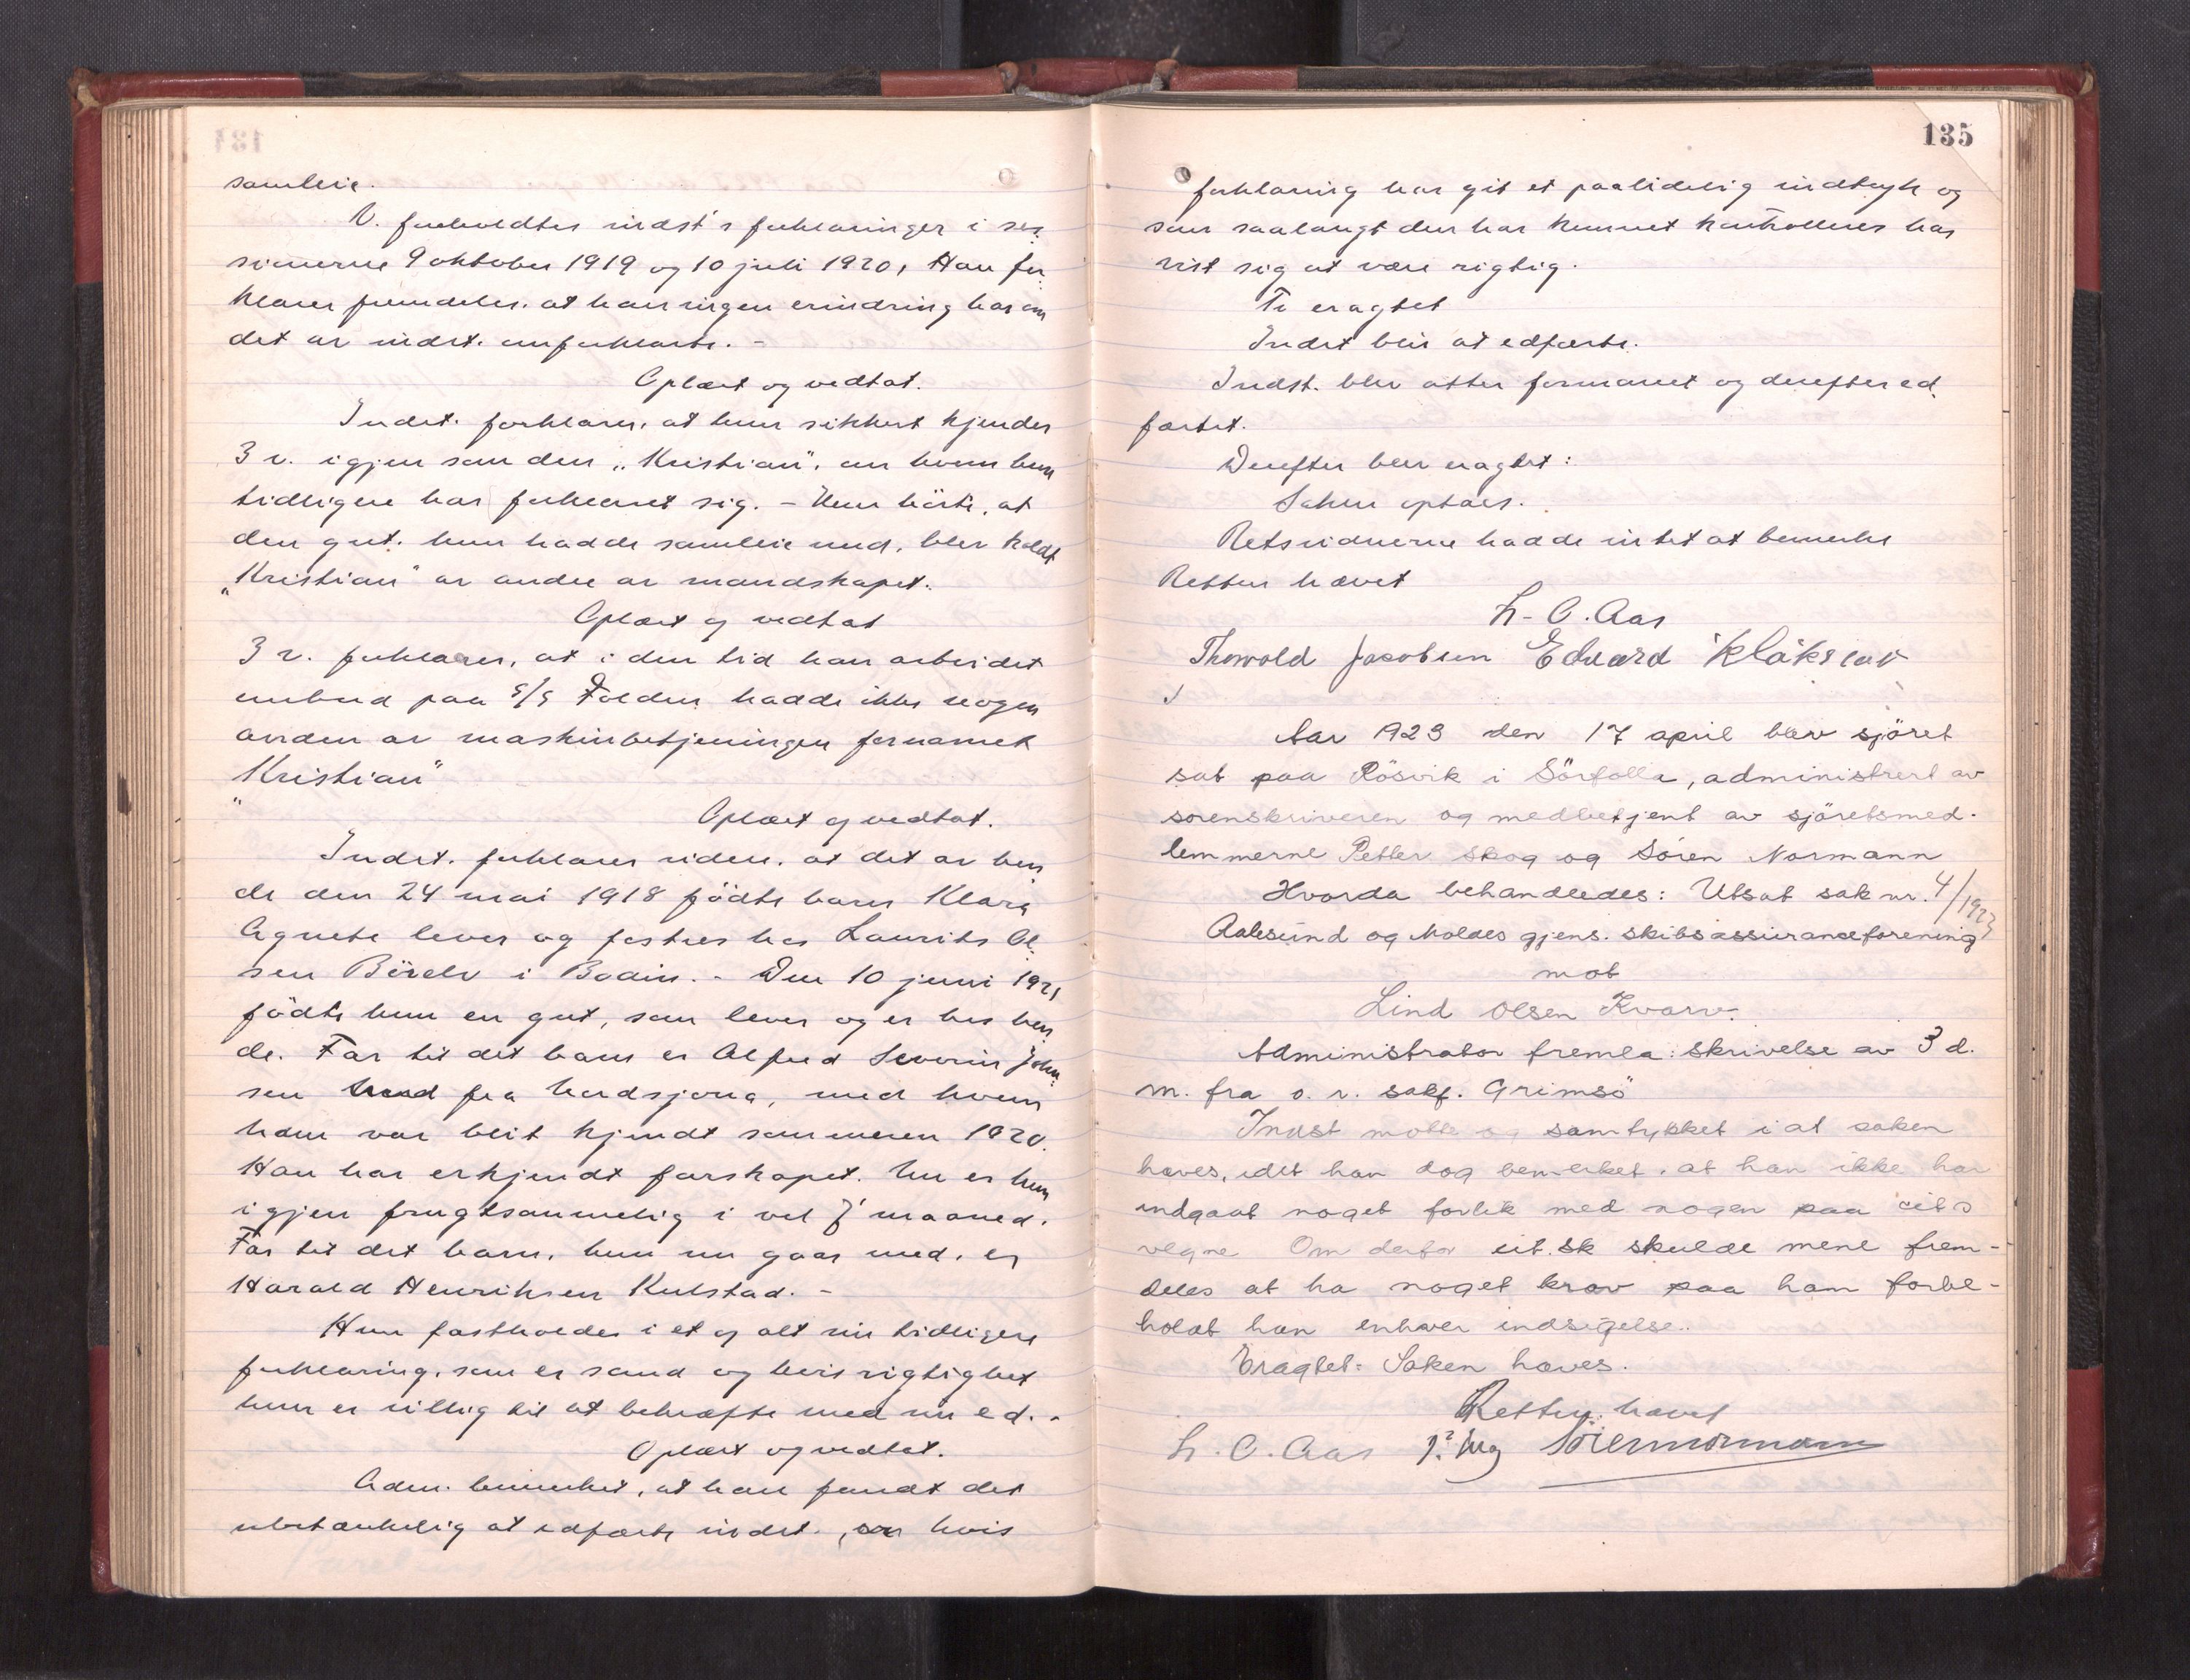 samleie.
V. foreholdtes indst's forklaringer i ses
sionerne 9 oktober 1919 og 10 juli 1920, Han for
klarer fremdeles, at han ingen erindring har om
det av indst. omforklarte. -
Oplæst og vedtat.
Indst. forklarer, at hun sikkert kjender
3 v. igjen som den „Kristian", om hvem hun
tidligere har forklaret sig. - Hun hörte, at
den gut, hun hadde samleie med, blev kaldt
„Kristian" av andre av mandskapet.
Oplæst og vedtat
3 v. forklarer, at i den tid han arbeidet
ombord paa s/s Folden hadde ikke nogen
anden av maskinbetjeningen fornavnet
„Kristian"
Oplæst og vedtat.
Indst. forklarer videre, at det av hen
de den 24 mai 1918 födte barn Klara
Agnete lever og fostres hos Laurits Ol
sen i Bodin. - Den 10 juni 1921
födte hun en gut, som lever og er hos hen
de. Far til det barn er Alfred Severin John
sen fra med hvem
hun var blit kjendt sommeren 1920.
Han har erkjendt farskapet. Nu er hun
igjen frugtsommelig i vel maaned.
Far til det barn, hun nu gaar med, er
Harald Henriksen Kulstad. -
Hun fastholder i et og alt sin tidligere
forklaring, som er sand og hvis rigtighet
hun er villig til at bekræfte med sin ed. -
Oplæst og vedtat.
Adm. bemerket, at han fandt det
ubetænkelig at edfæste indst., hvis
135
forklaring har git et paalidelig indtryk og
som saalangt den har kunnet kontrolleres har
vist sig at være rigtig.
Ti eragtet
Indst blir at edfæste.
Indst. blev atter formanet og derefter ed
fæstet.
Derefter blev eragtet:
Saken optaes.
Retsvidnerne hadde intet at bemerke
Retten hævet
L. C. Aas
Thorvald Jacobsen Edvard Klåkslav
Aar 1923 den 17 april blev sjöret
sat paa Rösvik i Sörfolla, administrert av
sorenskriveren og medbetjent av sjöretsmed-
lemmerne Petter Skog og Sören Normann
Hvorda behandledes: Utsat sak nr. 4/1923
Aalesund og Moldes gjens. skibsassuranceforening
mot
Lind Olsen Kvarv.
Administrator fremla: skrivelse av 3 d.
m. fra o. r. sakf. Grimsö
Indst mötte og samtykket i at saken
hæves, idet han dog bemerket, at han ikke har
indgaat noget forlik med nogen paa cit.s
vegne Om derfor cit.sk skulde mene frem-
deles at ha noget krav paa ham forbe-
holdt han enhver indsigelse.
Eragtet: Saken hæves.
Retten hævet
L. C. Aas P. Skog Sörennormann